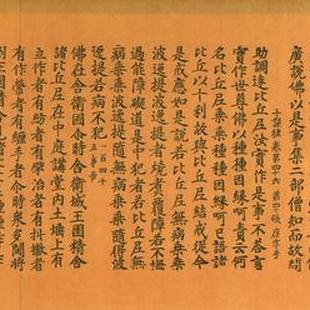 廣說佛以是事集二部僧知而故問
十誦律卷第四十六 第四張 府字号
助調達比丘尼汝實作是事不答言
實作世尊佛以種種因緣呵責云何
名比丘尼乘乘種種因緣呵已語諸
比丘以十利故與比丘尼結戒從今
是戒應如是說若比丘尼無病乘乘
波逸提波逸提者燒煮覆障若不悔
過能障礙道是中犯者若比丘尼無
病乘乘波逸提隨乘隨得波
逸提若病不犯 一百四十五事竟
佛在舍衛國尒時舍衛城王園精舍
諸比丘尼在中庭講堂內土墻上有
立作者有紡者有擘治者有抖擻者
有作縈者有纏手者令時衆多鬪將